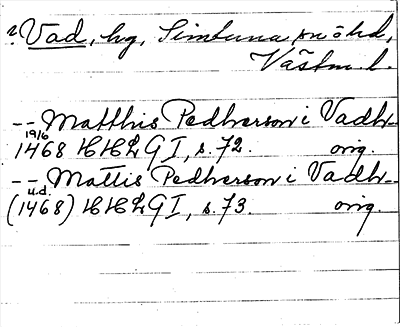 ? Vad, hg, Simtuna, snöhd,
Västm. l.
-- Matthis Pedherson i Vadh --
19/6
1468 HHLG I, s. 72. orig.
-- Mattis Pedherson i Vadh --
u.d.
(1468) HHLG I, s. 73. orig.